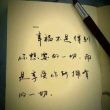 幸福不是得到
你想要的一切，而
是享受你所拥有
的一切.